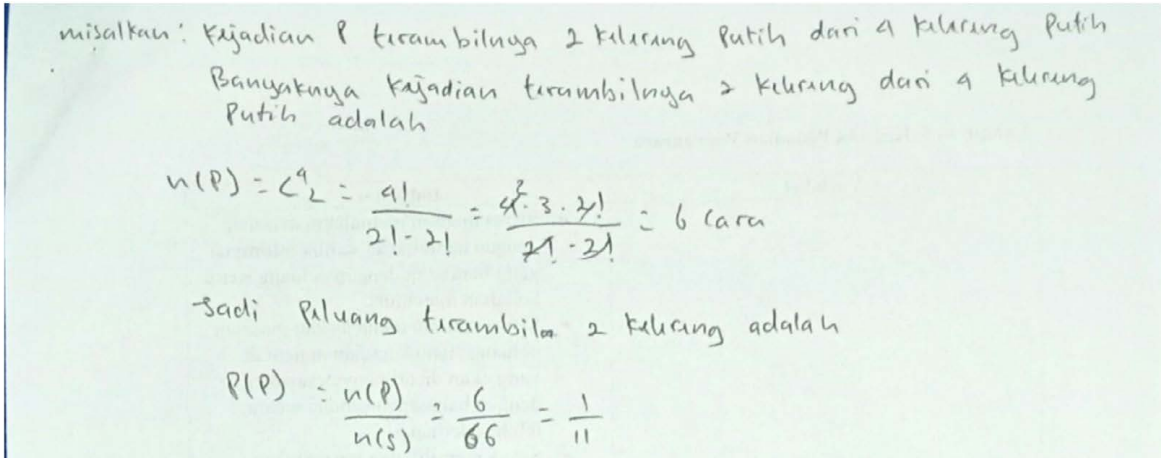 misalkan : Kejadian P terambilnya 2 kelereng Putih dari 4 kelereng Putih
Banyaknya kejadian terambilnya 2 kelereng dari 4 kelereng
Putih adalah
n(P) = C⁴₂ = 4! / 2! - 2! = 4² · 3 · 2! / 2! - 2! = 6 cara
Jadi Peluang terambila 2 kelereng adalah
P(P) : n(P) / n(s) = 6 / 66 = 1 / 11